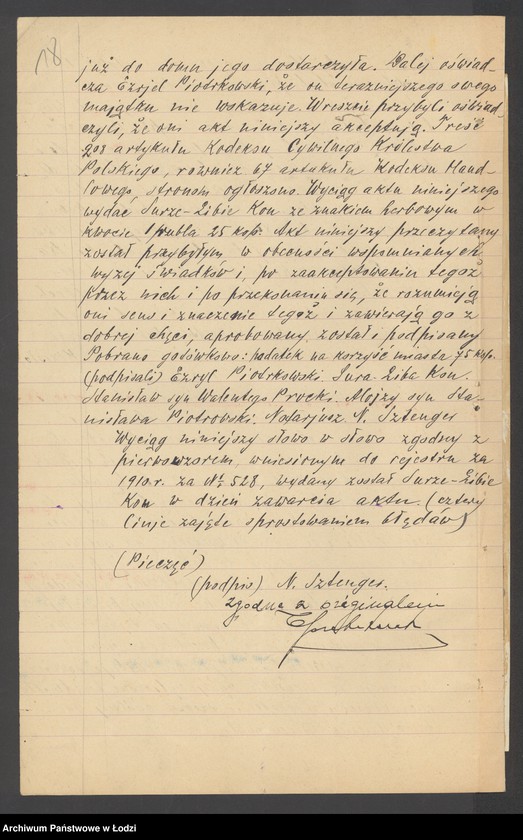 18
już do domu jego dostarczyła. Dalej oświad-
cza Ezrjel Piotrkowski, że on teraźniejszego swego
majątku nie wskazuje. Wreszcie przybyli oświad-
czyli, że oni akt niniejszy akceptują. Treść
208 artykułu Kodeksu Cywilnego Królestwa
Polskiego, również 67 artukułu Kodeksu Hand-
lowego, stronom ogłoszono. Wyciąg aktu niniejszego
wydać Surze-Libie Kon ze znakiem herbowym w
kwocie 1 rubla 25 kop. Akt niniejszy przeczytany
został przybyłym w obecności wspomnianych
wyżej świadków i, po zaakceptowaniu tegoż
przez nich i po przekonaniu się, że rozumieją
oni sens i znaczenie tegoż i zawierają go z
dobrej chęci, aprobowany został i podpisany
Pobrano gotówkowo: podatek na korzyść miasta 75 kop.
(podpisali) Ezryl Piotrkowski. Sura-Liba Kon.
Stanisław syn Walentego Procki. Alojzy syn Sta-
nisława Piotrowski. Notarjusz N. Sztenger
Wyciąg niniejszy słowo w słowo zgodny z
pierwowzorem, wniesionym do rejestru za
1910 r. za № 528, wydany został Surze-Libie
Kon w dzień zawarcia aktu. (cztery
linje zajęte sprostowaniem błędów)
(Pieczęć)
(podpis) N. Sztenger.
Zgodne z oryginałem
Archiwum Państwowe w Łodzi